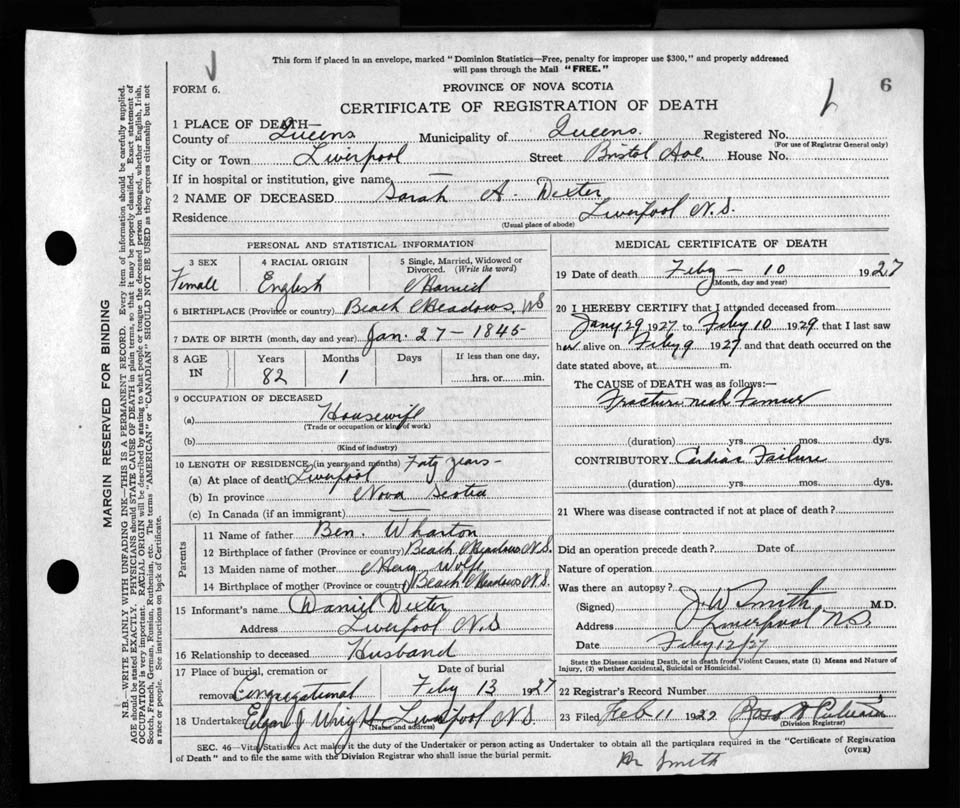 This form if placed in an envelope, marked "Dominion Statistics—Free, penalty for improper use $300," and properly addressed
will pass through the Mail "FREE."
FORM 6.
PROVINCE OF NOVA SCOTIA
6
CERTIFICATE OF REGISTRATION OF DEATH
1 PLACE OF DEATH—
County of Queens Municipality of Queens. Registered No.
(For use of Registrar General only)
City or Town Liverpool Street Bristol Ave. House No.
If in hospital or institution, give name —
2 NAME OF DECEASED Sarah A. Dexter
Residence Liverpool N.S.
(Usual place of abode)
MARGIN RESERVED FOR BINDING
N.B.—WRITE PLAINLY WITH UNFADING INK—THIS IS A PERMANENT RECORD. Every item of information should be carefully supplied.
AGE should be stated EXACTLY. PHYSICIANS should STATE CAUSE OF DEATH in plain terms, so that it may be properly classified. Exact statement of
OCCUPATION is very important. RACIAL ORIGIN will be described by stating to what people or tongue the deceased person belonged, whether English, Irish,
Scotch, French, German, Russian, Ruthenian, etc. The terms "AMERICAN" or "CANADIAN" SHOULD NOT BE USED as they express citizenship but not
a race or people. See instructions on back of Certificate.
PERSONAL AND STATISTICAL INFORMATION
3 SEX
Female
4 RACIAL ORIGIN
English
5 Single, Married, Widowed or
Divorced. (Write the word)
Married
6 BIRTHPLACE (Province or country) Beach Meadows, NS
7 DATE OF BIRTH (month, day and year) Jan. 27 – 1845
8 AGE
IN
Years
82
Months
1
Days
If less than one day,
hrs. or min.
9 OCCUPATION OF DECEASED
(a) Housewife
(Trade or occupation or kind of work)
(b)
(Kind of industry)
10 LENGTH OF RESIDENCE (in years and months) Forty years –
(a) At place of death Liverpool
(b) In province Nova Scotia
(c) In Canada (if an immigrant) —
Parents
11 Name of father Ben. Wharton
12 Birthplace of father (Province or country) Beach Meadows N.S.
13 Maiden name of mother Mary Wolfe
14 Birthplace of mother (Province or country) Beach Meadows N.S.
15 Informant's name Daniel Dexter
Address Liverpool N.S
16 Relationship to deceased Husband
17 Place of burial, cremation or
removal Congregational
Date of burial
Feby 13 1927
18 Undertaker Elgar J. Wright Liverpool N.S.
(Name and address)
MEDICAL CERTIFICATE OF DEATH
19 Date of death Feby – 10 1927
(Month, day and year)
20 I HEREBY CERTIFY that I attended deceased from
Jany 29 1927 to Feby 10 1929 that I last saw
her alive on Feby 9 1927 and that death occurred on the
date stated above, at m.
The CAUSE of DEATH was as follows:—
Fracture neck Femur
(duration) yrs. mos. dys.
CONTRIBUTORY Cardiac Failure
(duration) yrs. mos. dys.
21 Where was disease contracted if not at place of death?
Did an operation precede death? Date of
Nature of operation
Was there an autopsy?
(Signed) J. W. Smith M.D.
Address Liverpool N.S.
Date Feby 12/27
State the Disease causing Death, or in death from Violent Causes, state (1) Means and Nature of
Injury, (2) whether Accidental, Suicidal or Homicidal.
22 Registrar's Record Number
23 Filed Feb 11 1929
(Division Registrar)
SEC. 46—Vital Statistics Act makes it the duty of the Undertaker or person acting as Undertaker to obtain all the particulars required in the "Certificate of Registration
of Death" and to file the same with the Division Registrar who shall issue the burial permit.
(OVER)
Dr Smith